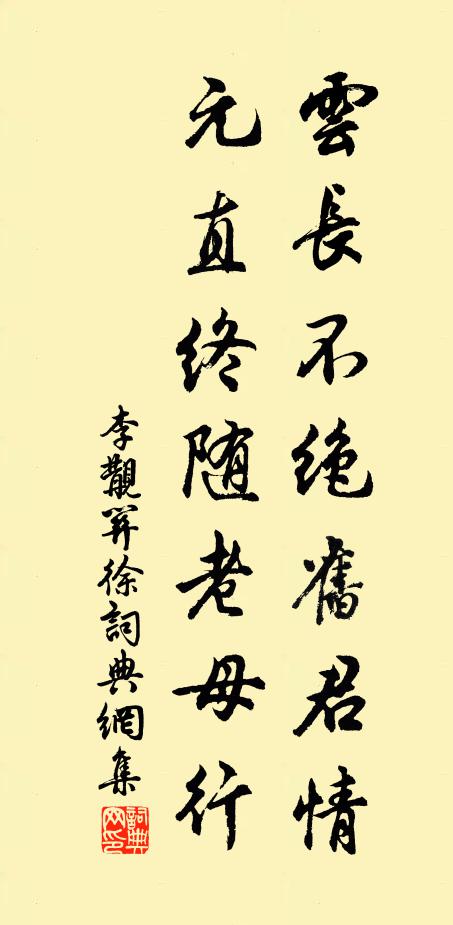 雲長不絶舊君情
元直終随老母行
李覯關徐詞典網集
詞典网印